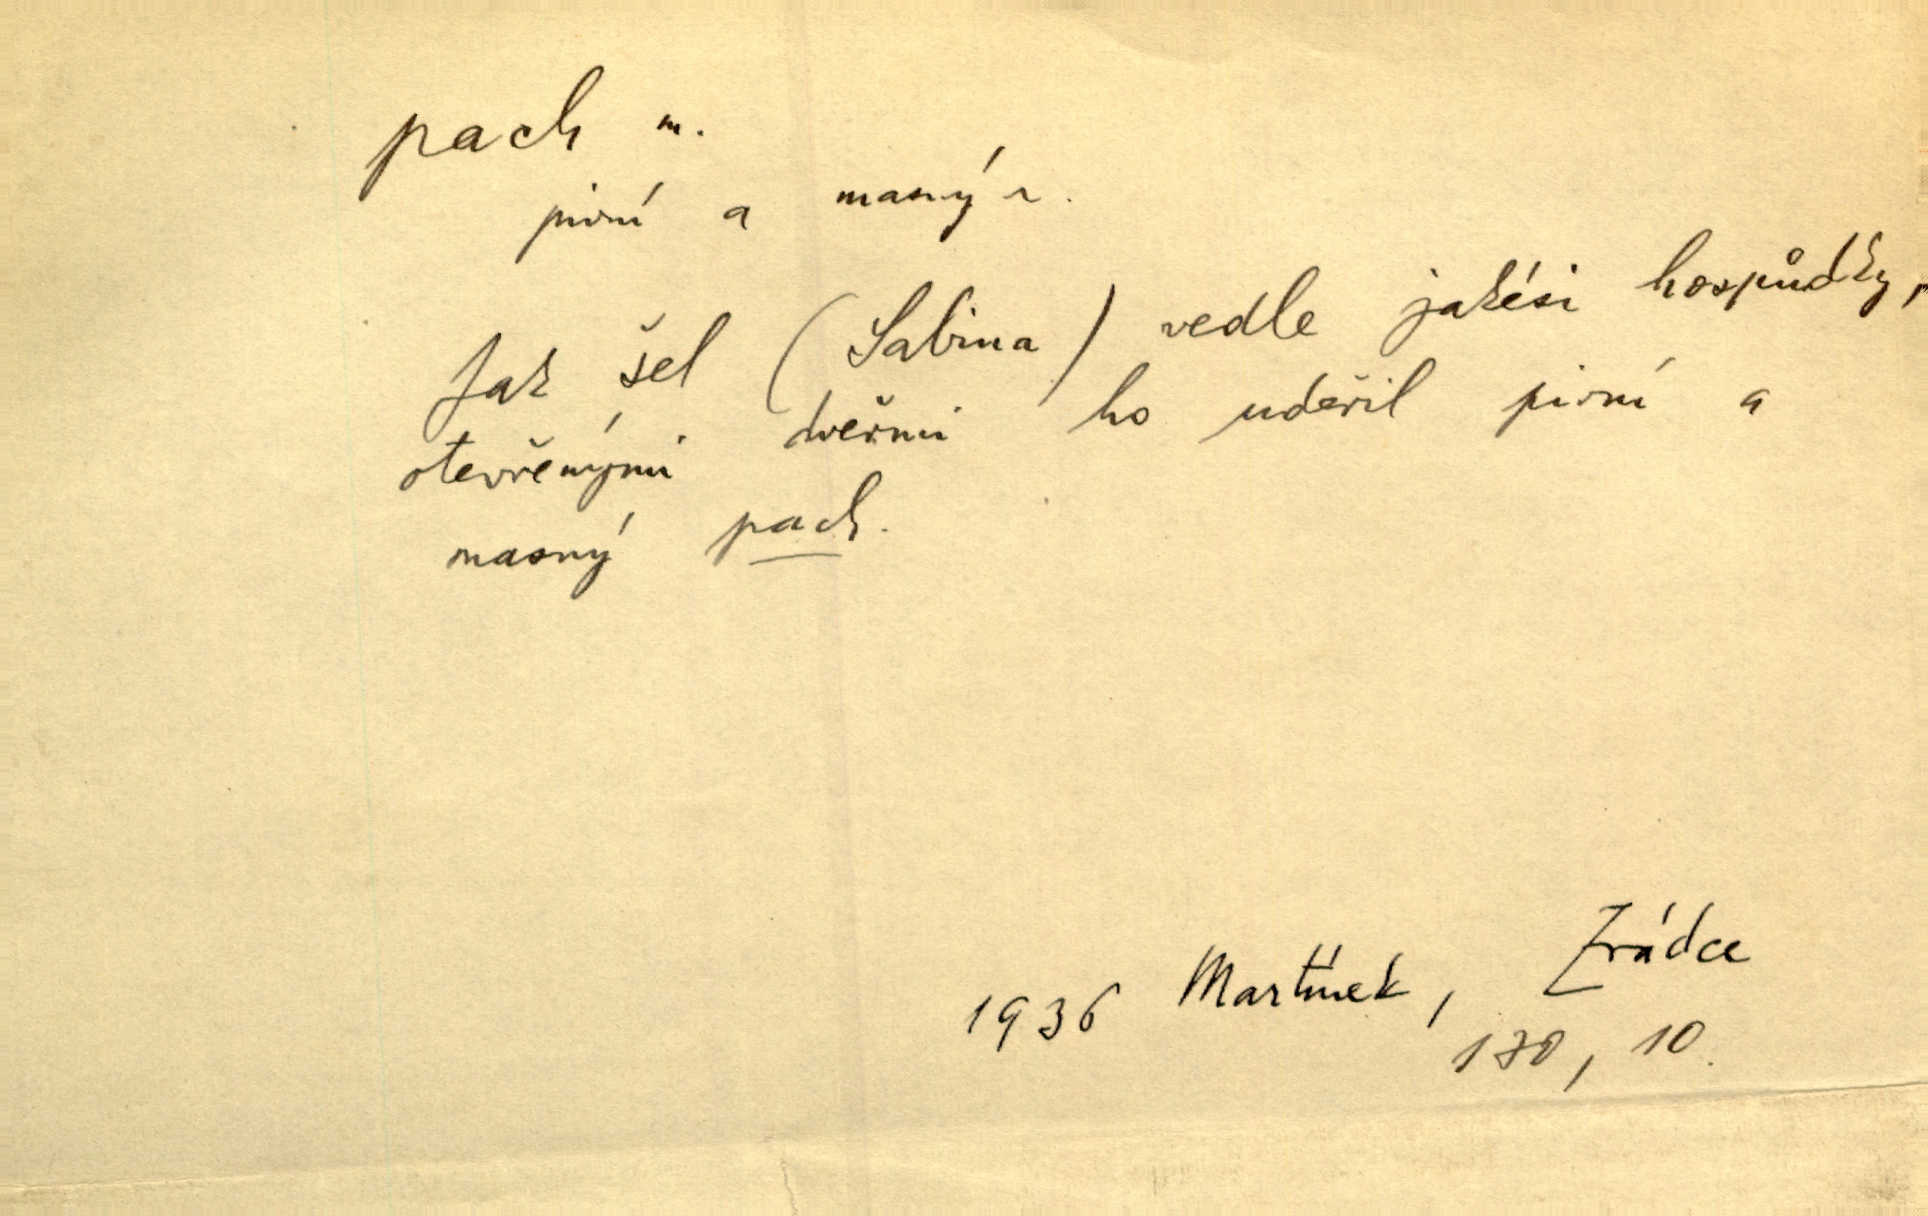 pach m.
pivní a masný ~.
Jak šel (Sabina) vedle jakési hospůdky,
otevřenými dveřmi ho udeřil pivní a
masný pach.
1936 Martínek, Zrádce
170, 10.